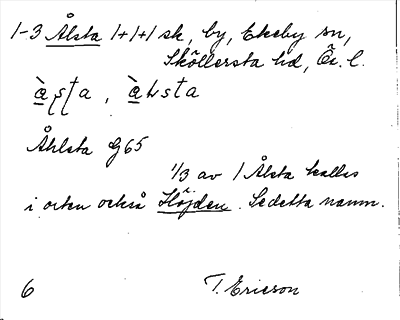 1-3 Ålsta 1+1+1 sk, by, Ekeby sn,
Sköllersta hd, Ör. l.
Åhlsta G65
1/3 av 1 Ålsta kallas
i orten också Höjden. Se detta namn.
6
T. Ericson